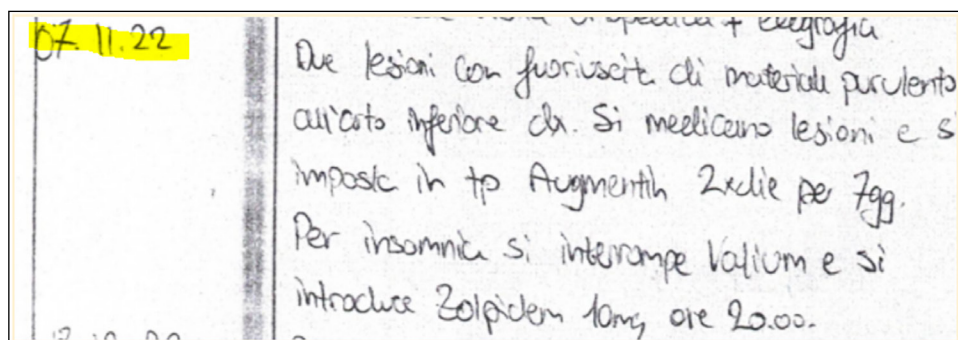 07.11.22
ortopedica + ecografia
Due lesioni con fuoriuscita di materiale purulento
all'arto inferiore dx. Si medicano lesioni e si
imposta in tp Augmentin 2xdie per 7gg.
Per insonnia si interrompe Valium e si
introduce Zolpidem 10mg ore 20.00.